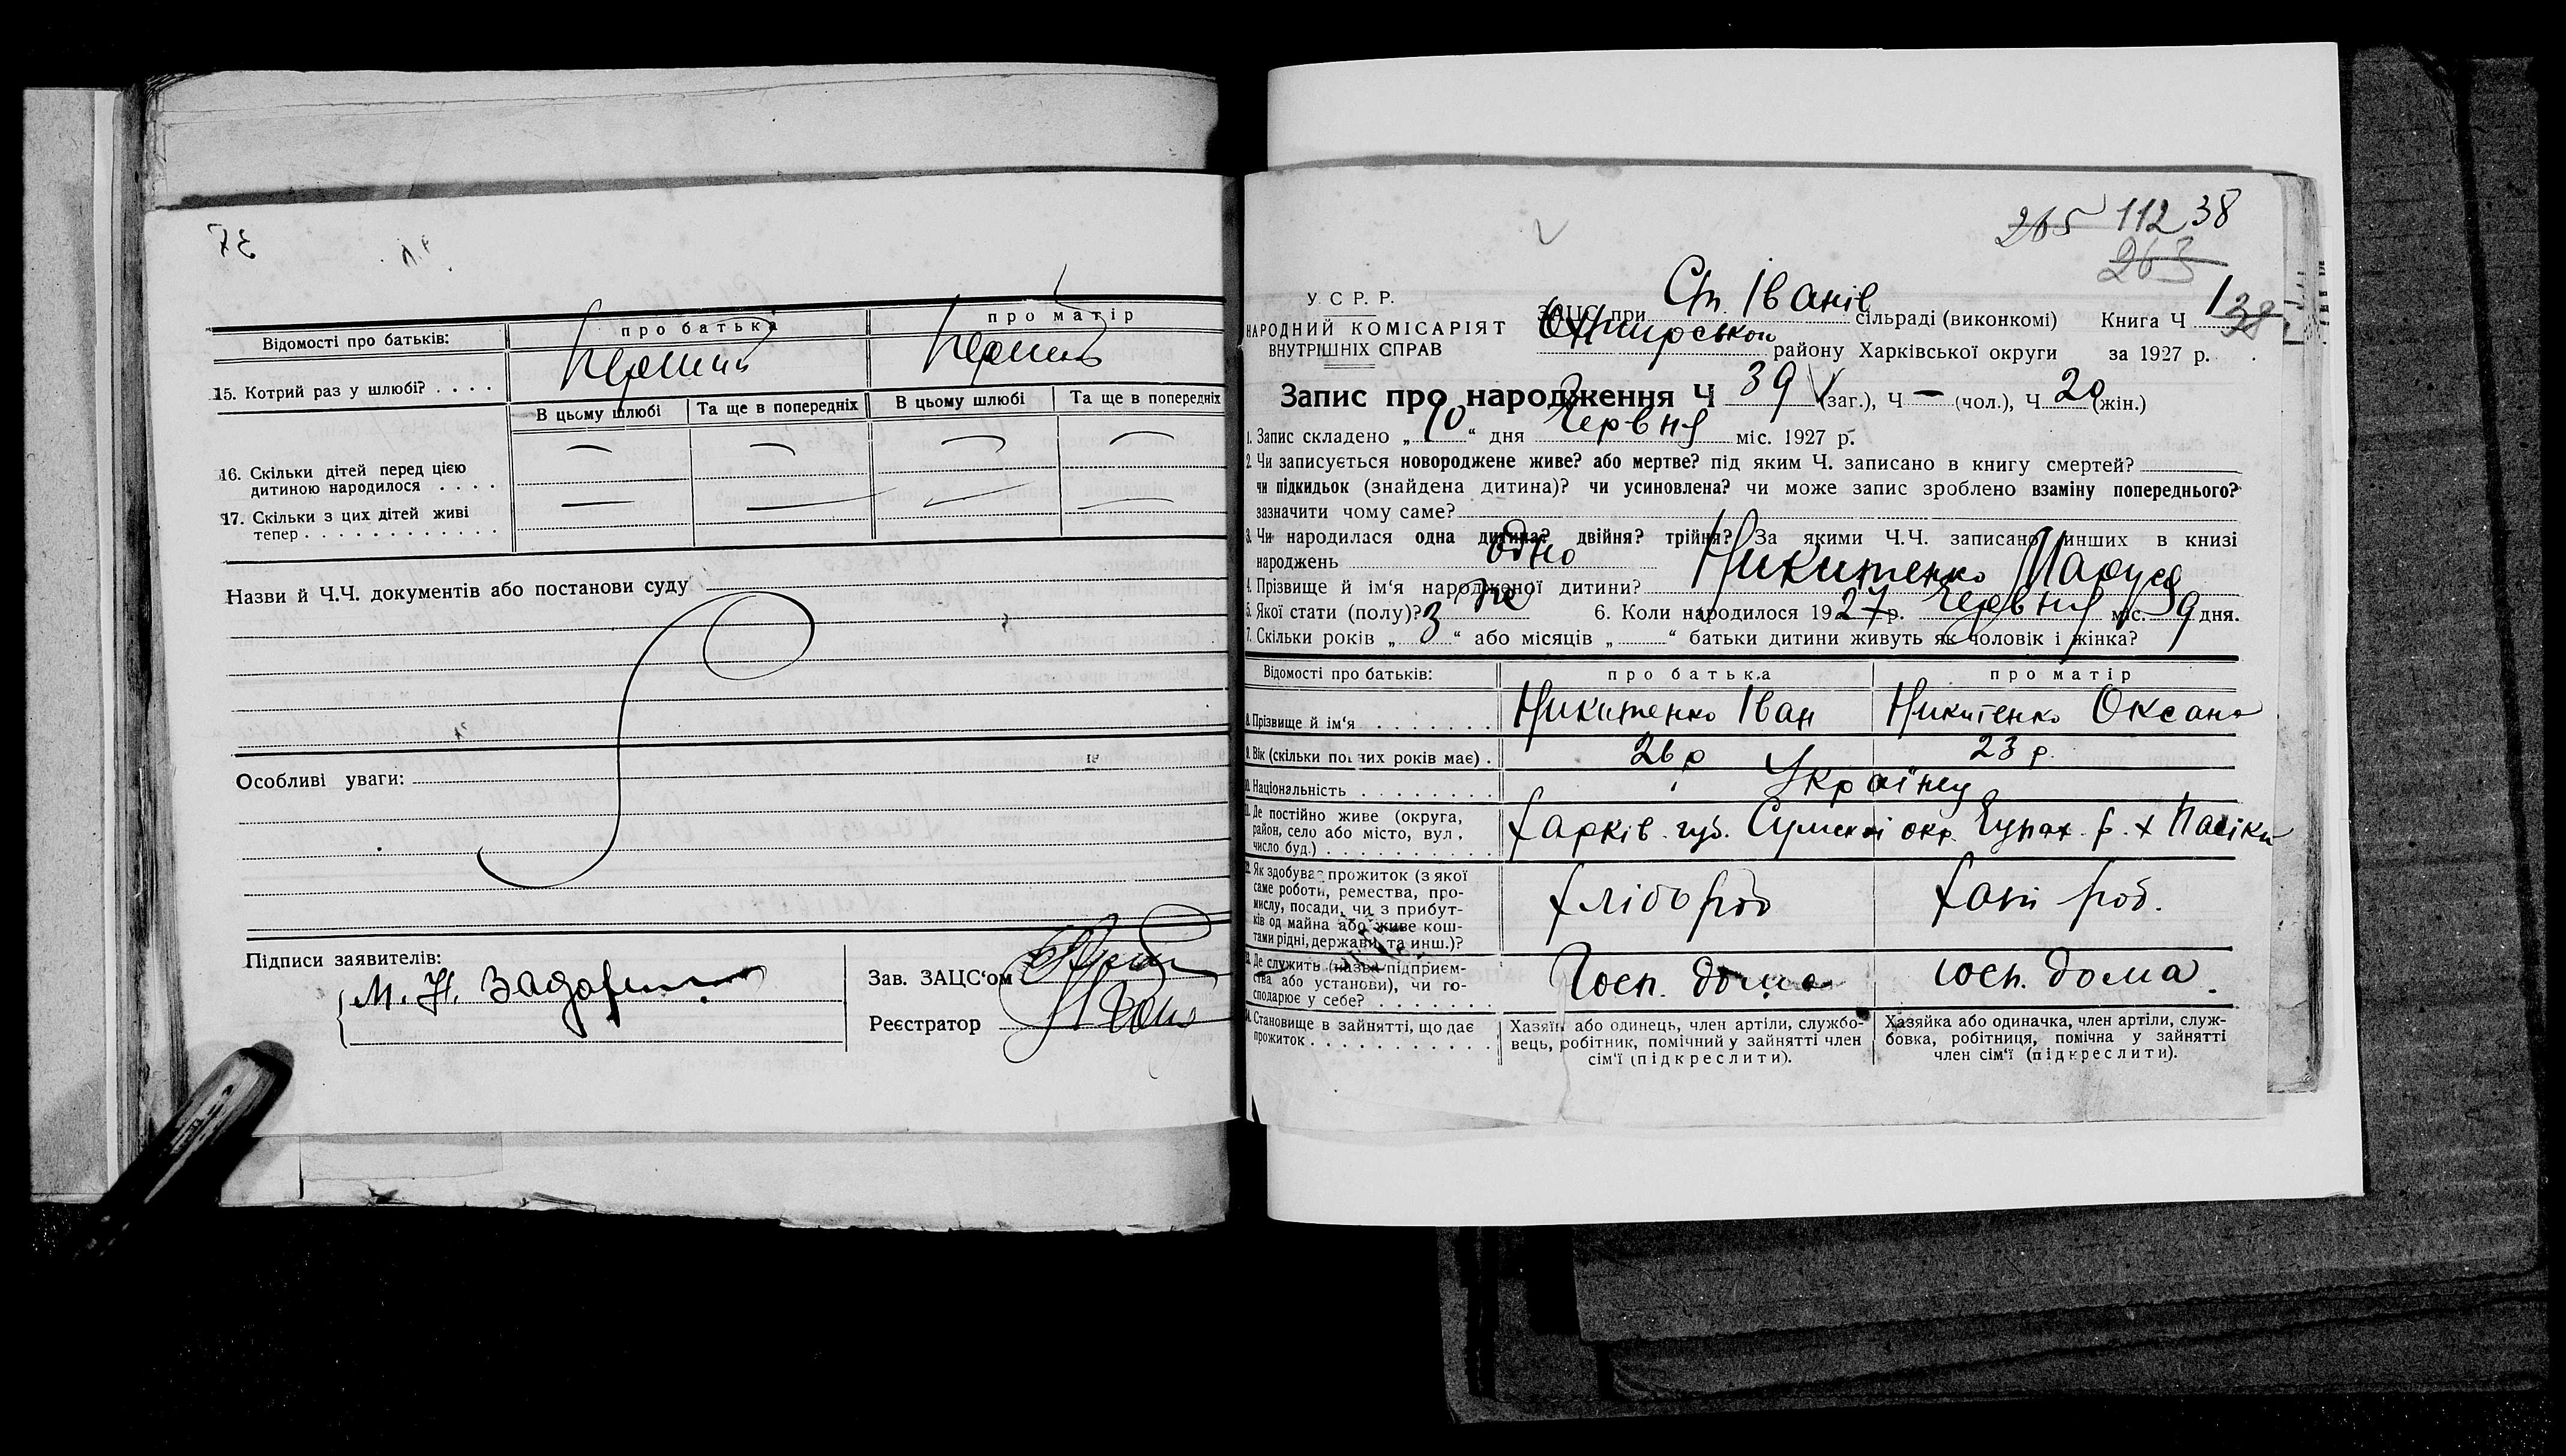 37
Відомості про батьків: про батька про матір
15. Котрий раз у шлюбі? . . . . Перший Перший
В цьому шлюбі Та ще в попередніх В цьому шлюбі Та ще в попередніх
16. Скільки дітей перед цією
дитиною народилося . . . . — — — —
17. Скільки з цих дітей живі
тепер . . . . . . . . . . . . — — — —
Назви й Ч.Ч. документів або постанови суду
Особливі уваги:
Підписи заявителів:
М. Н.
Зав. ЗАЦС‘ом
Реєстратор
265 112 38
263
У. С. Р. Р.
НАРОДНИЙ КОМІСАРІЯТ
ВНУТРІШНІХ СПРАВ
ЗАЦС при Ст. Іванів сільраді (виконкомі) Книга Ч 1 38
району Харківської округи за 1927 р.
Запис про народження Ч 39 (заг.), Ч — (чол.), Ч 20 (жін.)
1. Запис складено „ 10 “ дня Червня міс. 1927 р.
2. Чи записується новороджене живе? або мертве? під яким Ч. записано в книгу смертей?
чи підкидьок (знайдена дитина)? чи усиновлена? чи може запис зроблено взаміну попереднього?
зазначити чому саме?
3. Чи народилася одна дитина? двійня? трійня? За якими Ч.Ч. записано инших в книзі
народжень одно
4. Прізвище й ім‘я народженої дитини? Никитенко Маруся
5. Якої стати (полу)? же 6. Коли народилося 1927 р. Червня міс. 9 дня.
7. Скільки років „ 3 “ або місяців „ “ батьки дитини живуть як чоловік і жінка?
Відомості про батьків: про батька про матір
8. Прізвище й ім‘я . . . . . . . Никитенко Іван Никитенко Оксана
9. Вік (скільки повних років має) . 26 р 23 р.
10. Національність . . . . . . . . Українці
11. Де постійно живе (округа,
район, село або місто, вул.,
число буд.) . . . . . . . . . . Харків. губ. Сумської окр. Чупах. р. х Пасіки
12. Як здобуває прожиток (з якої
саме роботи, ремества, про-
мислу, посади, чи з прибут-
ків од майна або живе кош-
тами рідні, держави, та инш.)? Хлібороб Хат роб.
13. Де служить (назва підприєм-
ства або установи), чи го-
сподарює у себе? . . . . . . . Госп. дома госп. дома.
14. Становище в зайнятті, що дає
прожиток . . . . . . . . . . .
Хазяїн або одинець, член артіли, службо-
вець, робітник, помічний у зайнятті член
сім‘ї (підкреслити).
Хазяйка або одиначка, член артіли, служ-
бовка, робітниця, помічна у зайнятті
член сім‘ї (підкреслити).